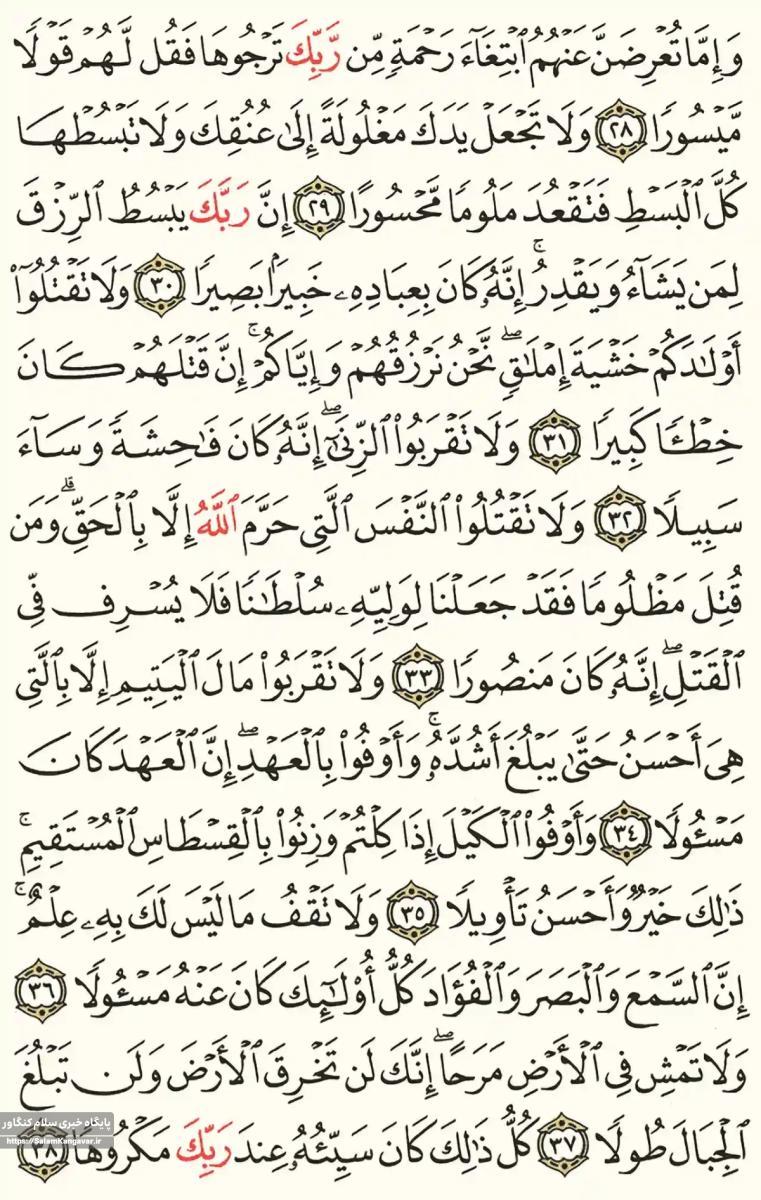 وَإِمَّا تُعۡرِضَنَّ عَنۡهُمُ ٱبۡتِغَآءَ رَحۡمَةٖ مِّن رَّبِّكَ تَرۡجُوهَا فَقُل لَّهُمۡ قَوۡلٗا
مَّيۡسُورٗا ٢٨ وَلَا تَجۡعَلۡ يَدَكَ مَغۡلُولَةً إِلَىٰ عُنُقِكَ وَلَا تَبۡسُطۡهَا
كُلَّ ٱلۡبَسۡطِ فَتَقۡعُدَ مَلُومٗا مَّحۡسُورًا ٢٩ إِنَّ رَبَّكَ يَبۡسُطُ ٱلرِّزۡقَ
لِمَن يَشَآءُ وَيَقۡدِرُۚ إِنَّهُۥ كَانَ بِعِبَادِهِۦ خَبِيرَۢا بَصِيرٗا ٣٠ وَلَا تَقۡتُلُوٓاْ
أَوۡلَٰدَكُمۡ خَشۡيَةَ إِمۡلَٰقٖۖ نَّحۡنُ نَرۡزُقُهُمۡ وَإِيَّاكُمۡۚ إِنَّ قَتۡلَهُمۡ كَانَ
خِطۡـٔٗا كَبِيرٗا ٣١ وَلَا تَقۡرَبُواْ ٱلزِّنَىٰٓۖ إِنَّهُۥ كَانَ فَٰحِشَةٗ وَسَآءَ
سَبِيلٗا ٣٢ وَلَا تَقۡتُلُواْ ٱلنَّفۡسَ ٱلَّتِي حَرَّمَ ٱللَّهُ إِلَّا بِٱلۡحَقِّۗ وَمَن
قُتِلَ مَظۡلُومٗا فَقَدۡ جَعَلۡنَا لِوَلِيِّهِۦ سُلۡطَٰنٗا فَلَا يُسۡرِف فِّي
ٱلۡقَتۡلِۖ إِنَّهُۥ كَانَ مَنصُورٗا ٣٣ وَلَا تَقۡرَبُواْ مَالَ ٱلۡيَتِيمِ إِلَّا بِٱلَّتِي
هِيَ أَحۡسَنُ حَتَّىٰ يَبۡلُغَ أَشُدَّهُۥۚ وَأَوۡفُواْ بِٱلۡعَهۡدِۖ إِنَّ ٱلۡعَهۡدَ كَانَ
مَسۡـُٔولٗا ٣٤ وَأَوۡفُواْ ٱلۡكَيۡلَ إِذَا كِلۡتُمۡ وَزِنُواْ بِٱلۡقِسۡطَاسِ ٱلۡمُسۡتَقِيمِۚ
ذَٰلِكَ خَيۡرٞ وَأَحۡسَنُ تَأۡوِيلٗا ٣٥ وَلَا تَقۡفُ مَا لَيۡسَ لَكَ بِهِۦ عِلۡمٌۚ
إِنَّ ٱلسَّمۡعَ وَٱلۡبَصَرَ وَٱلۡفُؤَادَ كُلُّ أُوْلَٰٓئِكَ كَانَ عَنۡهُ مَسۡـُٔولٗا ٣٦
وَلَا تَمۡشِ فِي ٱلۡأَرۡضِ مَرَحًاۖ إِنَّكَ لَن تَخۡرِقَ ٱلۡأَرۡضَ وَلَن تَبۡلُغَ
ٱلۡجِبَالَ طُولٗا ٣٧ كُلُّ ذَٰلِكَ كَانَ سَيِّئُهُۥ عِندَ رَبِّكَ مَكۡرُوهٗا ٣٨
پایگاه خبری سلام کنگاور
https://SalamKangavar.ir